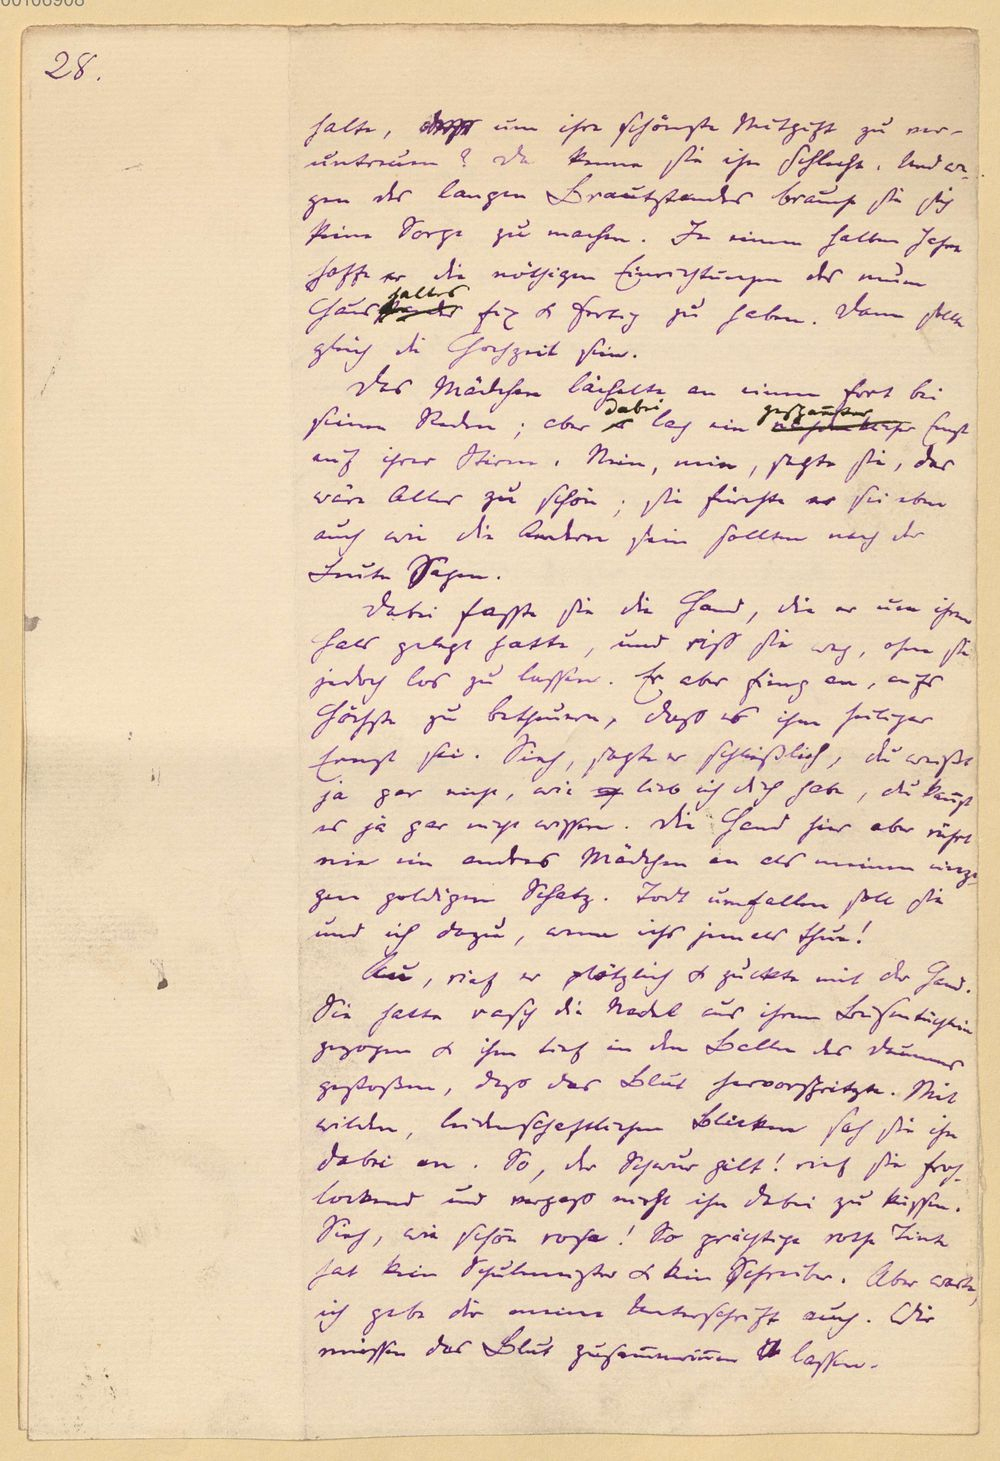 00106908
28.
halte, um ihre schönste Mitgift zu ver-
untreuen? Da kenne sie ihn schlecht. Und we-
gen des langen Brautstandes brauche sie sich
keine Sorge zu machen. In einem halben Jahre
hoffe er die nöthigen Einrichtungen des neuen
Haushaltes fix & fertig zu haben. Dann solle
gleich die Hochzeit sein.
Das Mädchen lächelte an einem fort bei
seinen Reden; aber dabei lag ein gespannter Ernst
auf ihrer Stirne. Nein, nein, sagte sie, das
wäre Alles zu schön; sie fürchte er sei eben
auch wie die Andern sein sollten nach der
Leute Sagen.
Dabei fasste sie die Hand, die er um ihren
Hals gelegt hatte, und riss sie weg, ohne sie
jedoch los zu lassen. Er aber fieng an, aufs
Höchste zu betheuern, dass es ihm heiliger
Ernst sei. Sieh, sagte er schließlich, du weißt
ja gar nicht, wie lieb ich dich habe, du kannst
es ja gar nicht wissen. Die Hand hier aber rührt
nie ein andres Mädchen an als meinen einzi-
gen goldigen Schatz. Todt umfallen soll sie
und ich dazu, wenn ichs jemals thue!
Au, rief er plötzlich & zuckte mit der Hand.
Sie hatte rasch die Nadel aus ihrem Busentüchlein
gezogen & ihm tief in den Ballen des Daumens
gestoßen, dass das Blut hervorspritzte. Mit
wilden, leidenschaftlichen Blicken sah sie ihn
dabei an. So, der Schwur gilt! rief sie froh-
lockend und vergass nicht ihn dabei zu küssen.
Sieh, wie schön rothe! So prächtige rothe Tinte
hat kein Schulmeister & kein Schreiber. Aber warte,
ich gebe dir meine Unterschrift auch. Wir
müssen das Blut zusammenrinnen lassen.